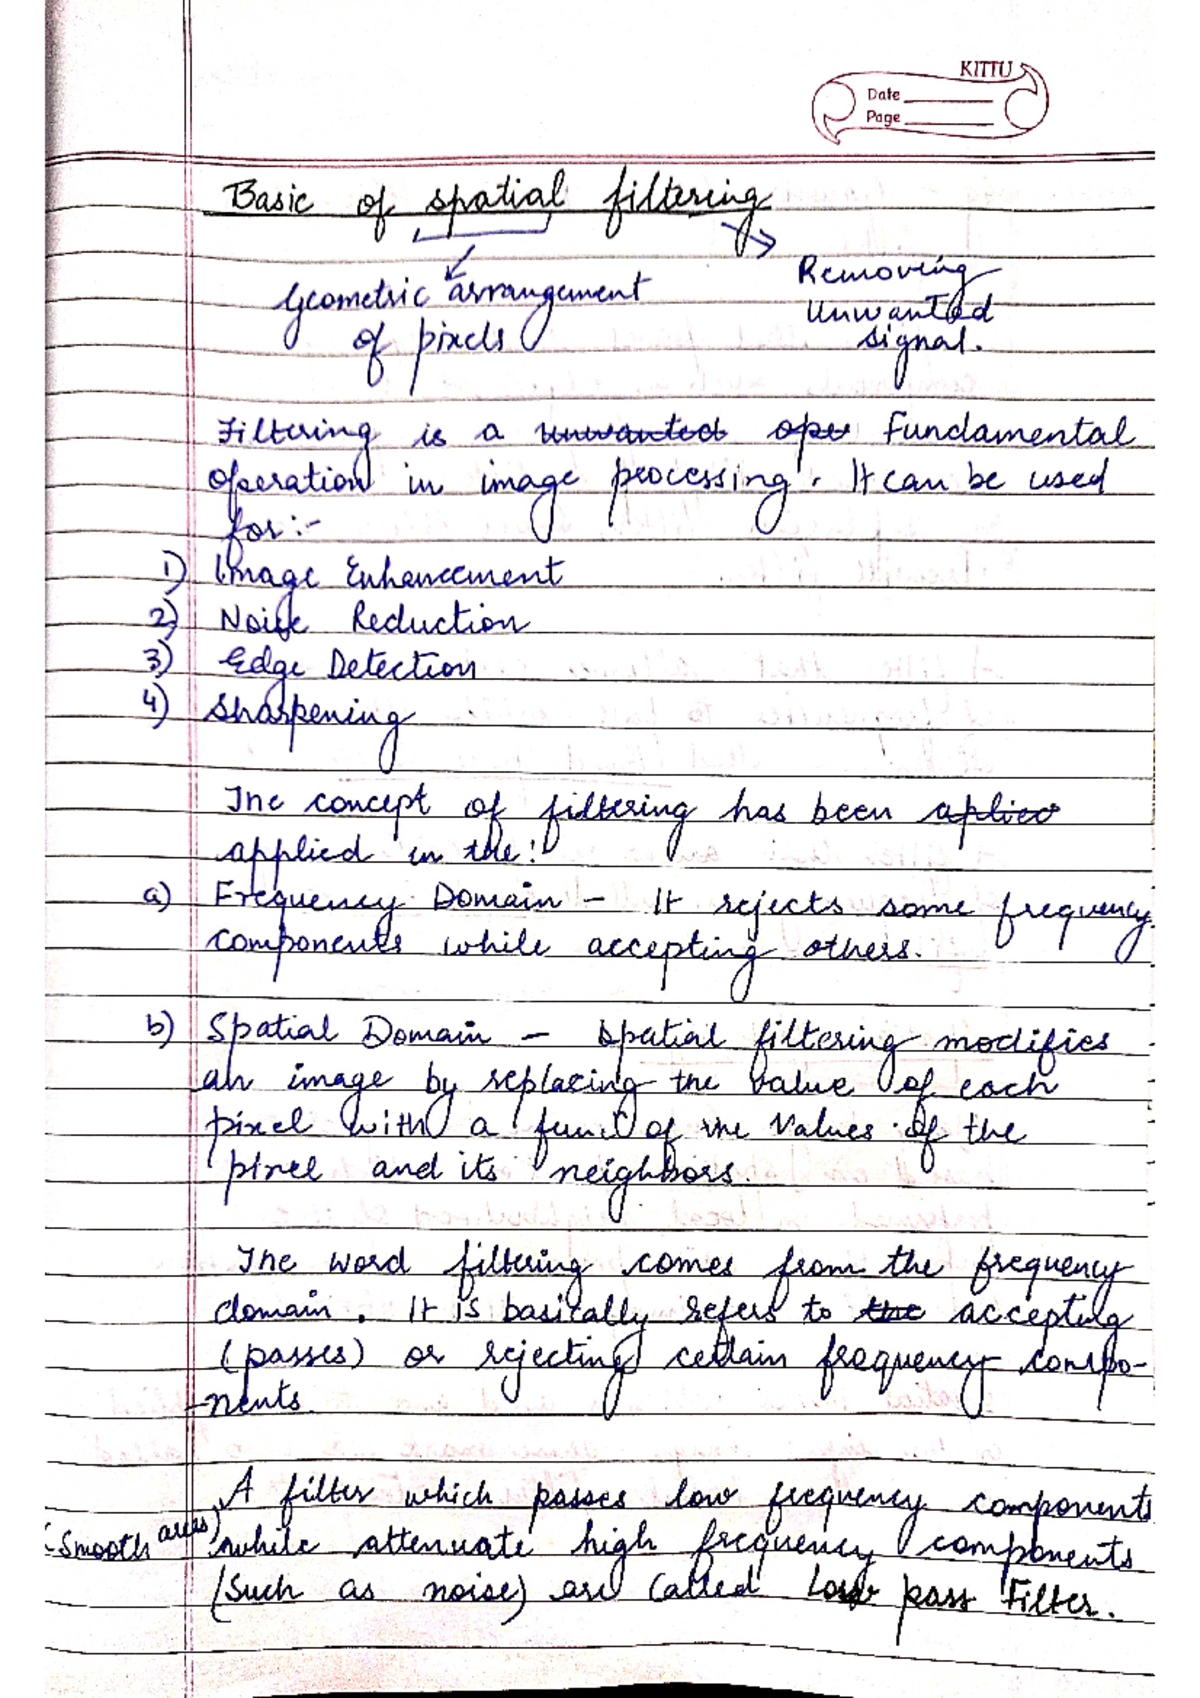 KITTU
Date
Page
Basic of spatial filtering
Geometric arrangement
of pixels
Removing
Unwanted
signal.
Filtering is a unwanted ope Fundamental
operation in image processing. It can be used
for:-
1) Image Enhancement
2) Noise Reduction
3) Edge Detection
4) Sharpening
The concept of filtering has been aplied
applied in the:
a) Frequency Domain - It rejects some frequency
components while accepting others.
b) Spatial Domain - Spatial filtering modifies
an image by replacing the value of each
pixel with a funcⁿ of the values of the
pixel and its neighbors.
The word filtering comes from the frequency
domain. It is basically refers to the accepting
(passes) or rejecting certain frequency compo-
-nents.
A filter which passes low frequency components
(Smooth areas) while attenuate high frequency components
(Such as noise) are called Low pass Filter.